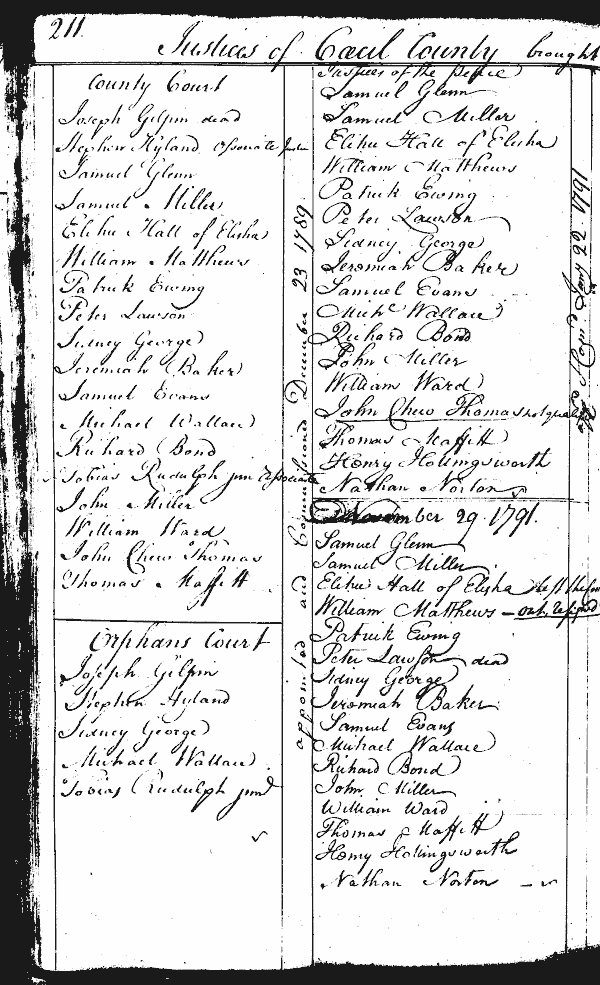 211.
Justices of Cæcil County brought
County Court
Joseph Gilpin dead
Stephen Hyland Associate Justice
Samuel Glenn
Samuel Miller
Elihu Hall of Elisha
William Matthews
Patrick Ewing
Peter Lawson
Sidney George
Jeremiah Baker
Samuel Evans
Michael Wallace
Richard Bond
Tobias Rudulph junr Associate
John Miller
William Ward
John Chew Thomas
Thomas Maffitt
Orphans Court
Joseph Gilpin
Stephen Hyland
Sidney George
Michael Wallace
Tobias Rudulph junr
appointed and Commissioned December 23 1789
Justices of the peace
Samuel Glenn
Samuel Miller
Elihu Hall of Elisha
William Matthews
Patrick Ewing
Peter Lawson
Sidney George
Jeremiah Baker
Samuel Evans
Michl Wallace
Richard Bond
John Miller
William Ward
John Chew Thomas not qual
Thomas Maffitt
Henry Hollingsworth
Nathan Norton
November 29. 1791.
Samuel Glenn
Samuel Miller
Elihu Hall of Elisha left the
William Matthews - out
Patrick Ewing
Peter Lawson dead
Sidney George
Jeremiah Baker
Samuel Evans
Michael Wallace
Richard Bond
John Miller
William Ward
Thomas Maffitt
Henry Hollingsworth
Nathan Norton
Jany 22 1791